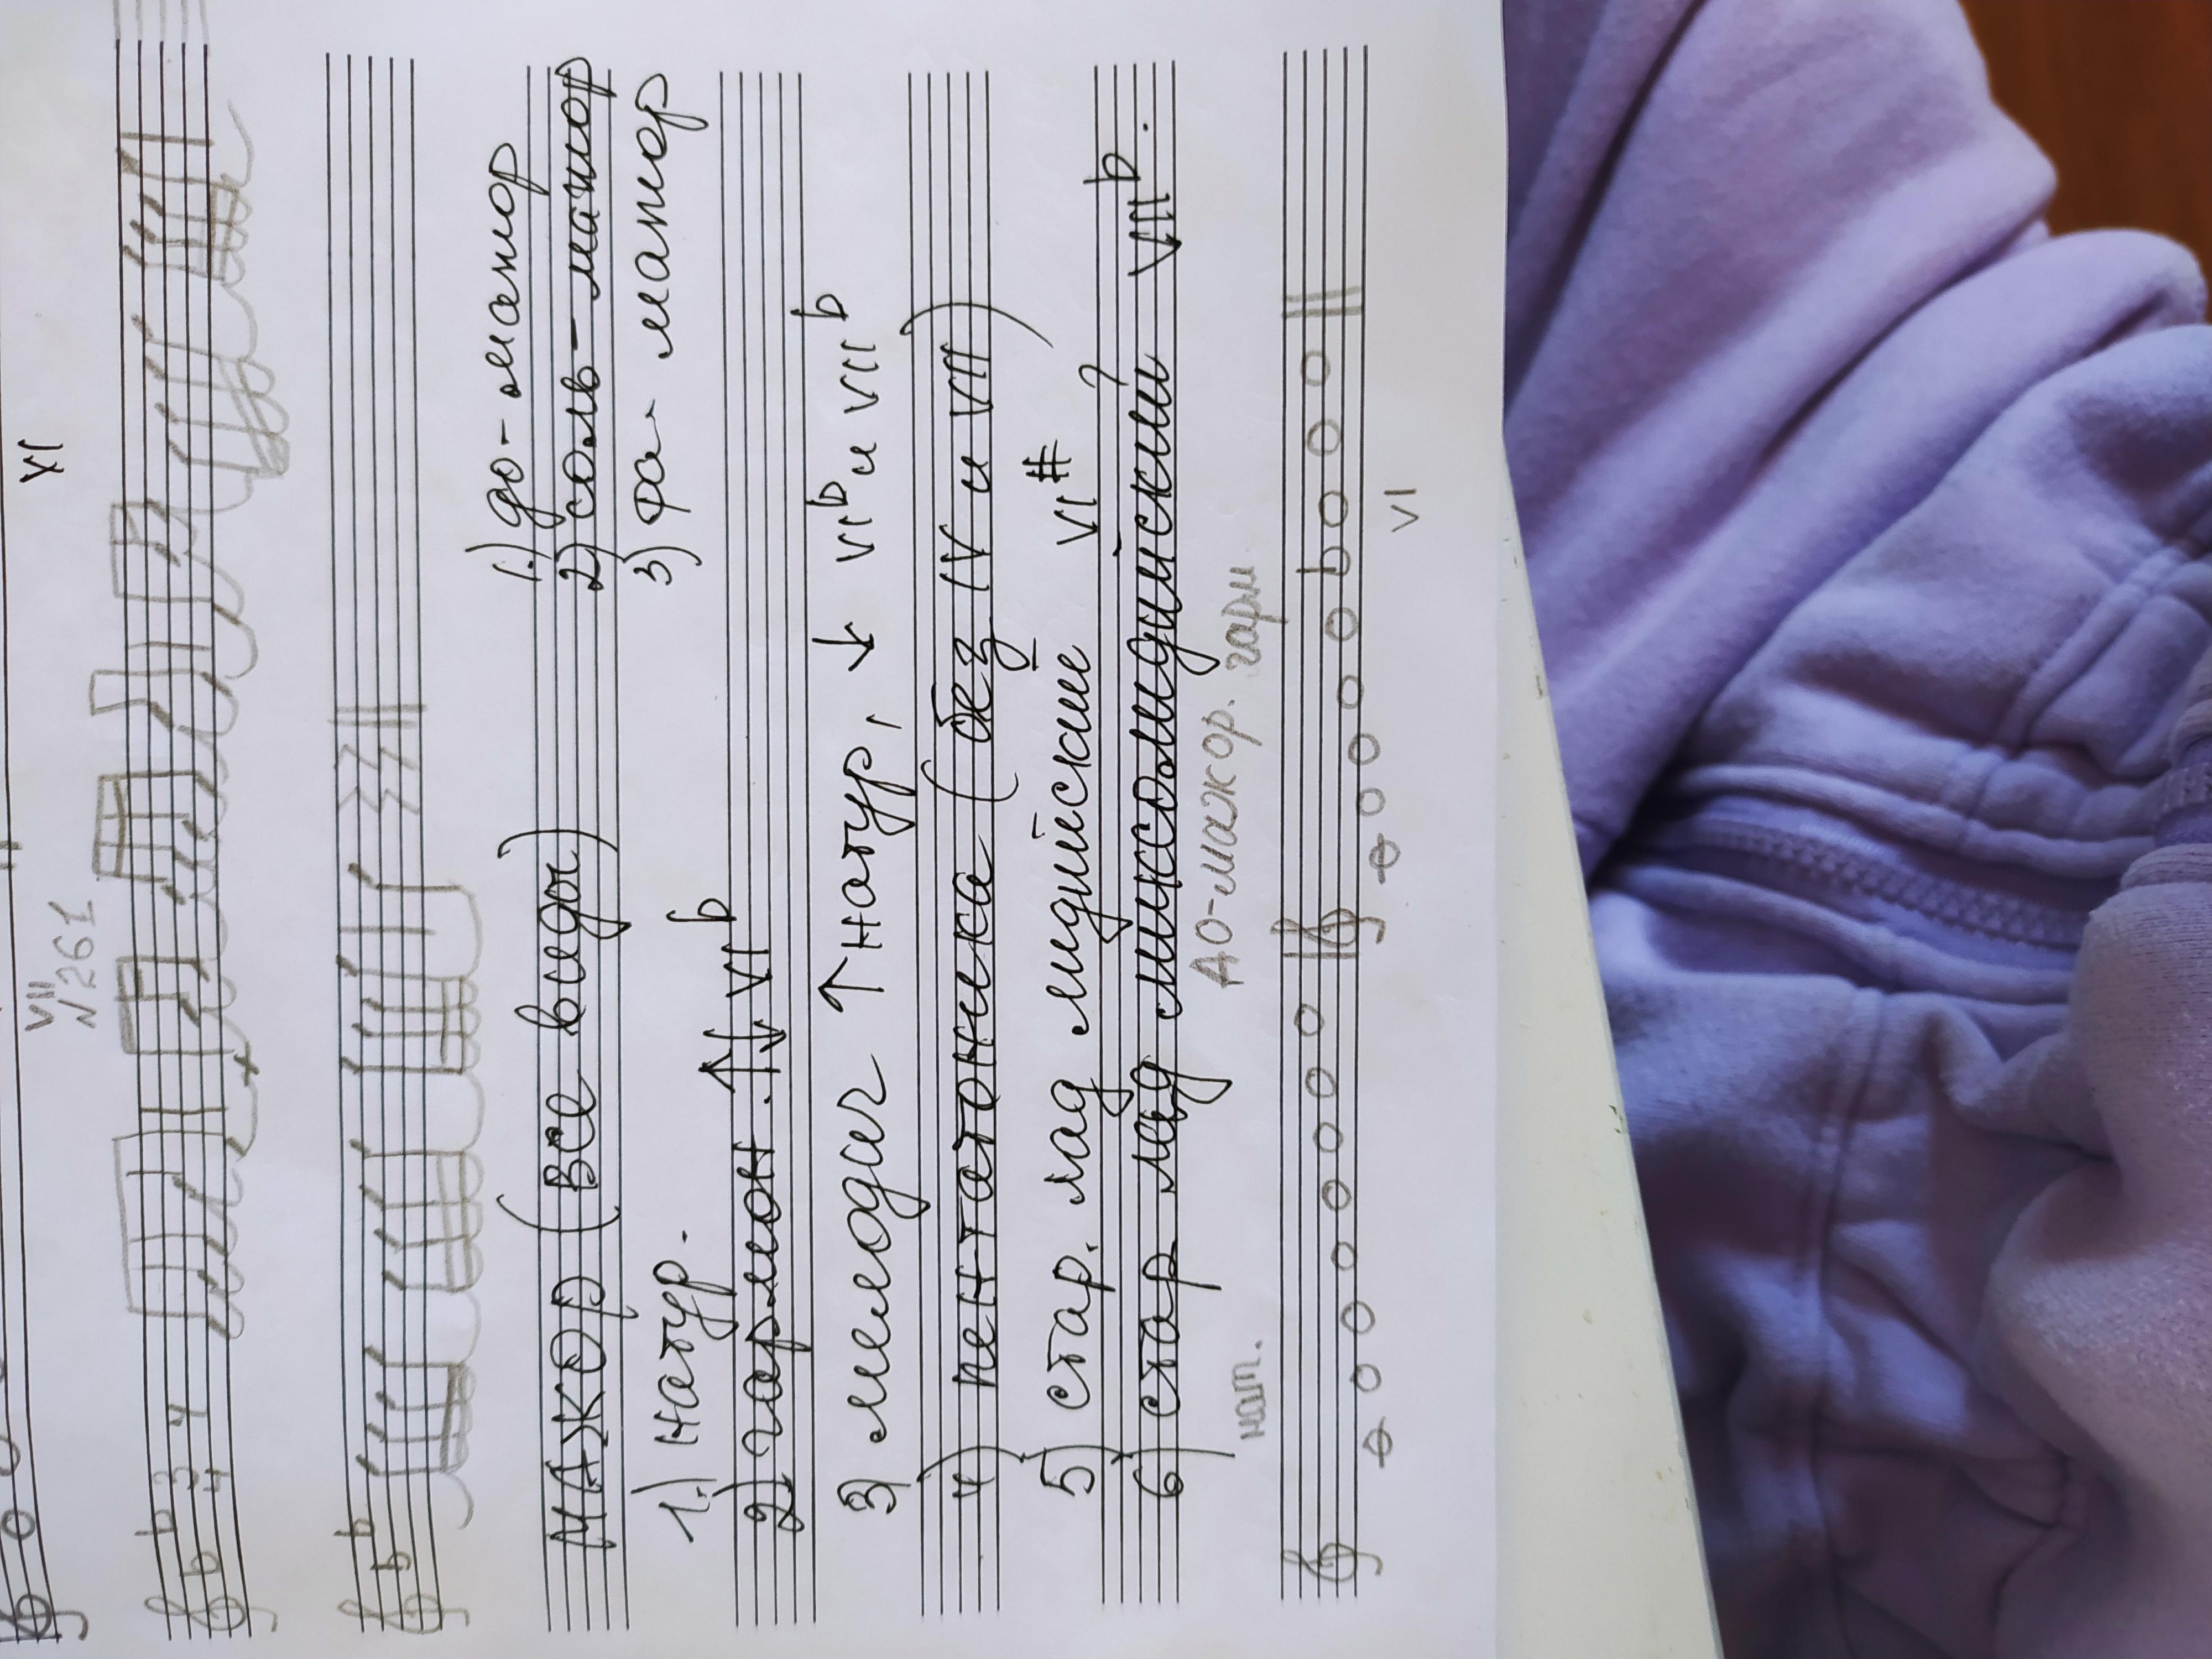 VI
VII
N261
3 4
4
МАЖОР (все виды) 1.) до-мажор
2) соль-мажор
1.) натур. 3) фа-мажор
2) гармон. ↑↓ VI♭
3) мелодич ↑натур, ↓ VI♭ и VII♭
4) пентатоника (без IV и VII)
5) стар. лад лидийские VI# ?
6) стар лад миксолидийский VII♭.
нат. ДО-мажор. гарм
VI